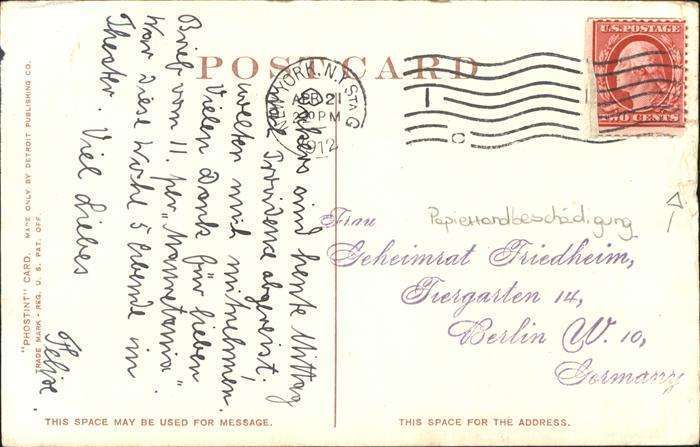 POST CARD
NEW YORK, N.Y. STA G
APR 21
2 30 PM
1912
U.S. POSTAGE
CENTS
sind heute Mittag
nach Providence abgereist.
wollten mich mitnehmen.
Vielen Dank für lieben
Brief vom 11. per "Mauretania".
War diese Woche 5 Abende im
Theater. Viel Liebes
Felix.
"PHOSTINT" CARD. MADE ONLY BY DETROIT PUBLISHING CO.
TRADE MARK - REG. U. S. PAT. OFF.
THIS SPACE MAY BE USED FOR MESSAGE.
Frau
Papierrandbeschädigung
Geheimrat Friedheim,
Tiergarten 14,
Berlin W. 10,
Germany
THIS SPACE FOR THE ADDRESS.